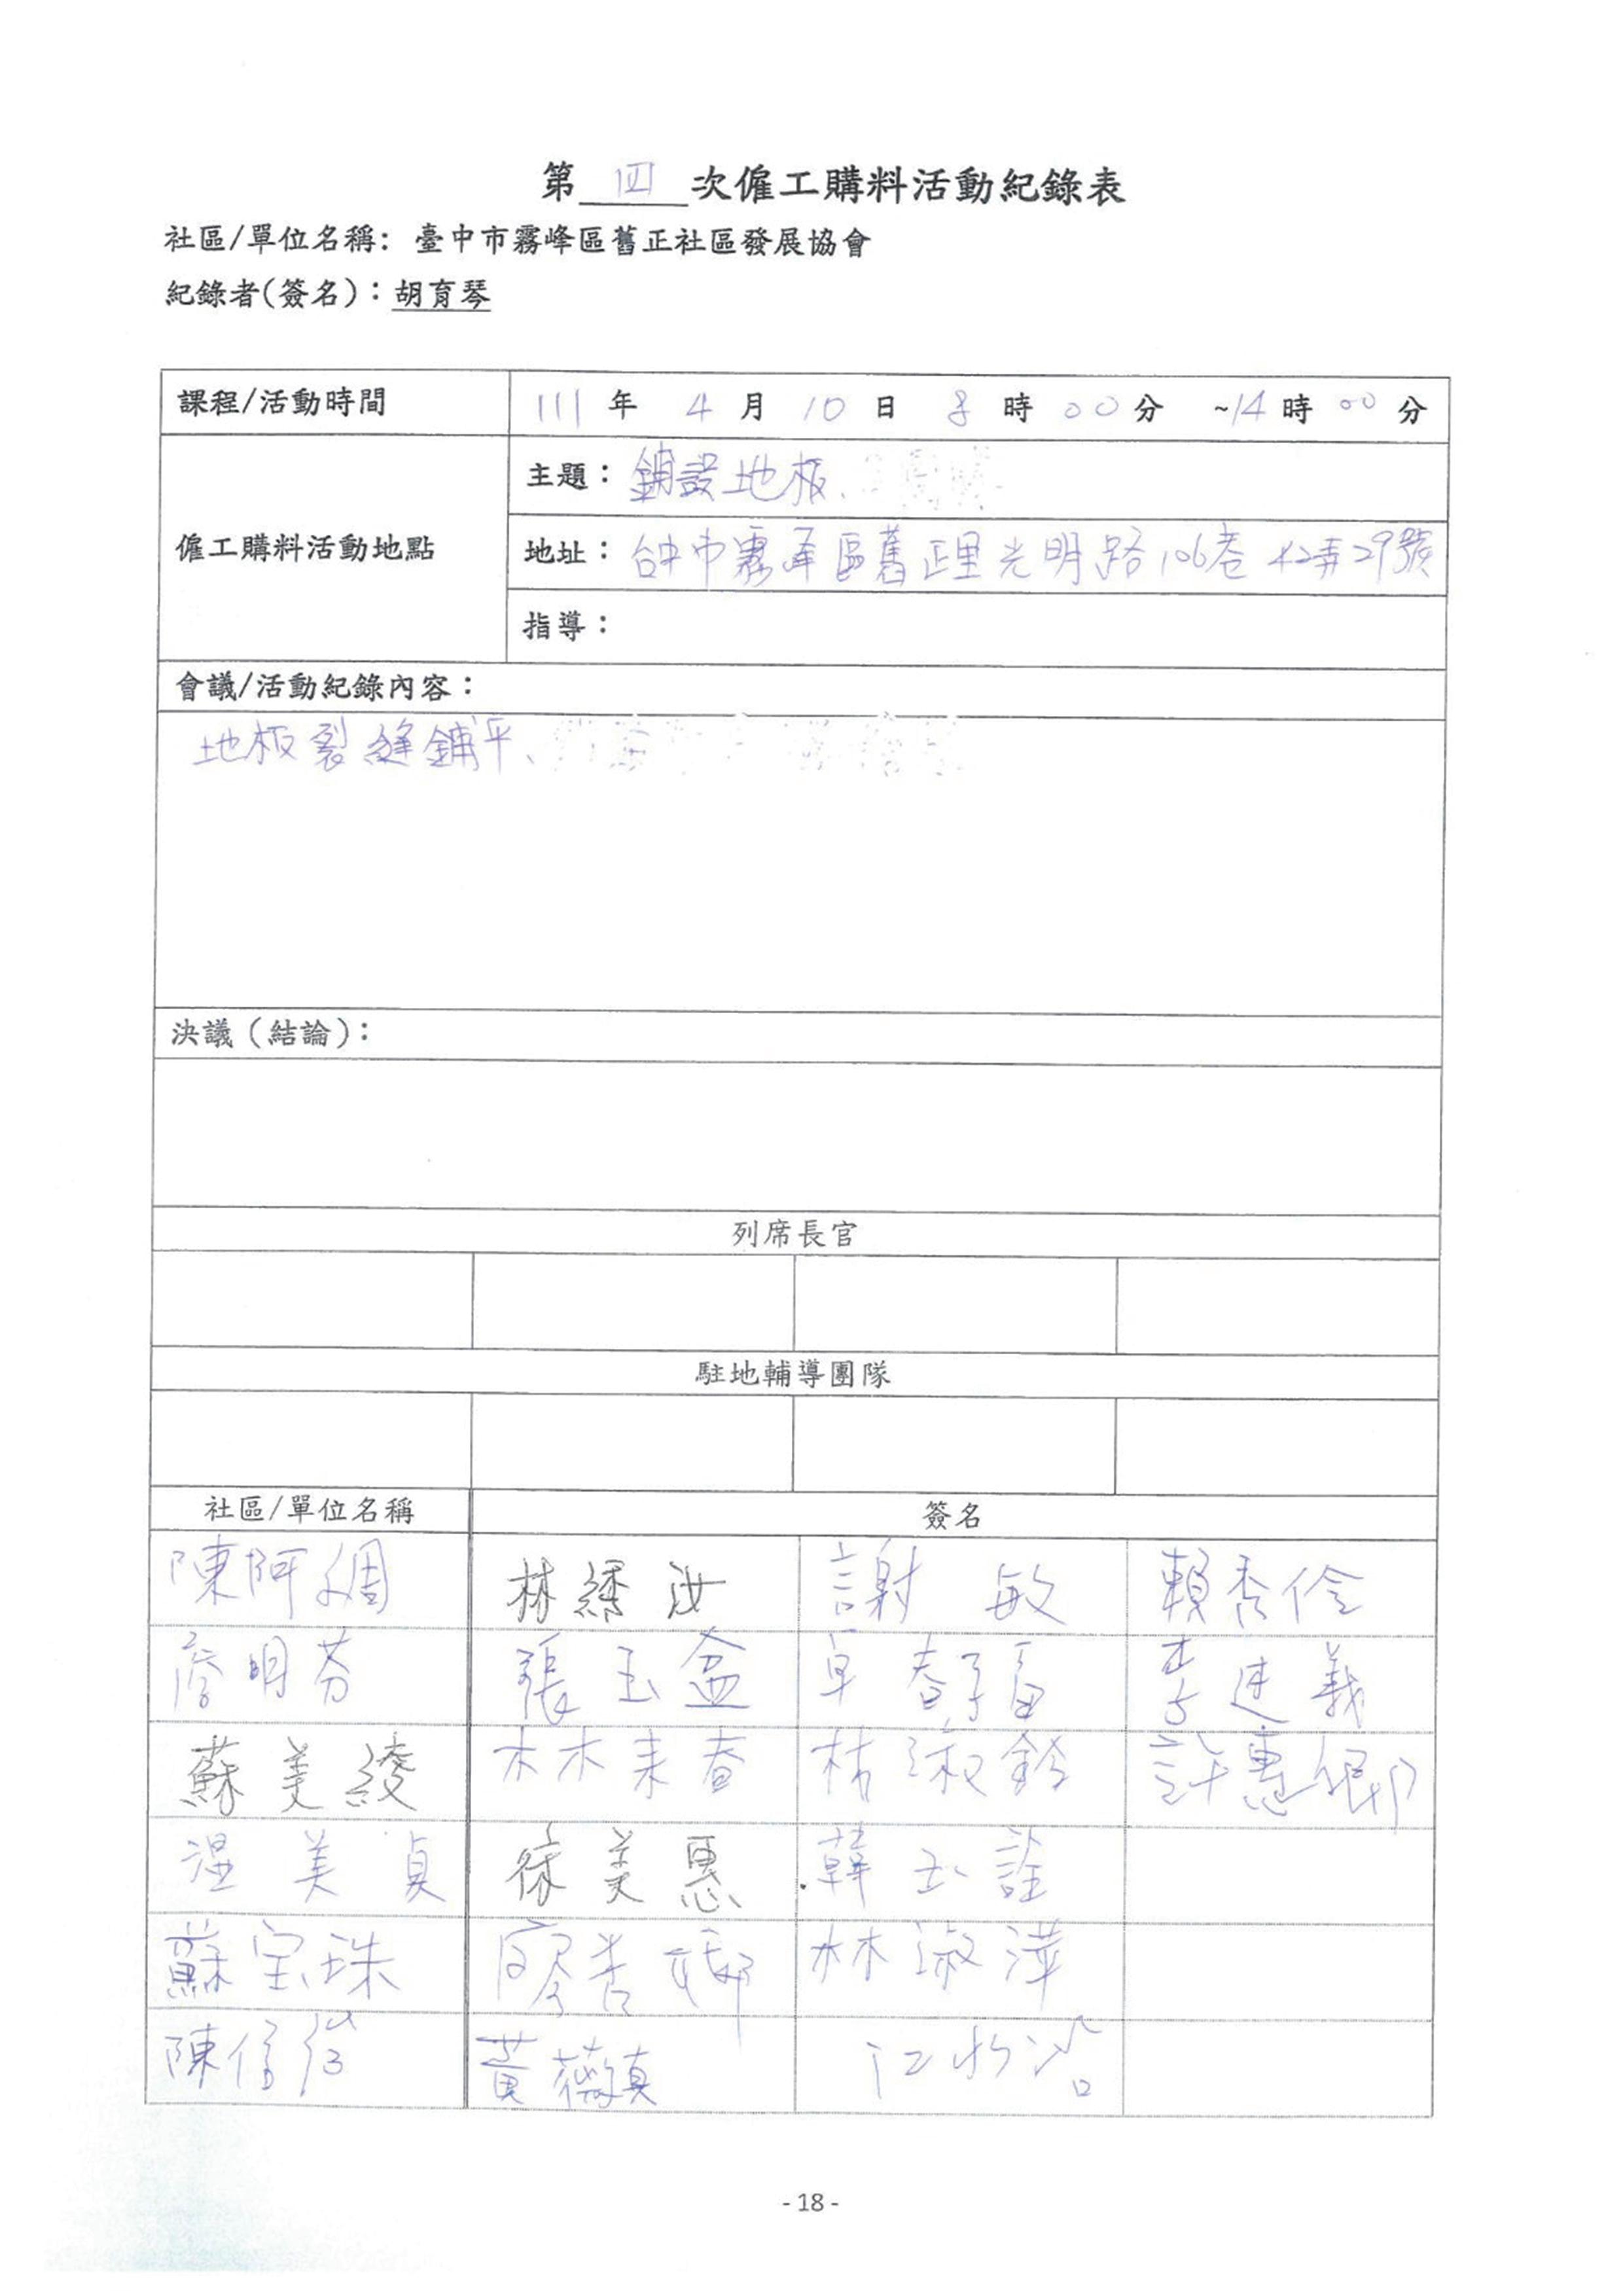 第 四 次僱工購料活動紀錄表
社區/單位名稱: 臺中市霧峰區舊正社區發展協會
紀錄者(簽名):胡育琴
課程/活動時間 111 年 4 月 10 日 8 時 00 分 ~14 時 00 分
僱工購料活動地點
主題: 鋪設地板、
地址: 台中市霧峯區舊正里光明路106巷42弄29號
指導:
會議/活動紀錄內容:
地板裂縫鋪平、
決議(結論):
列席長官
駐地輔導團隊
社區/單位名稱 簽名
陳阿 林繡汝 謝敏 賴秀伶
詹明芬 張玉盆 卓春 李建義
蘇美綾 林素春 林淑鈴 許惠卿
溫美貞 徐美惠 韓玉詮
蘇宝珠 廖杏娜 林淑萍
陳信 黃薇真 江
- 18 -